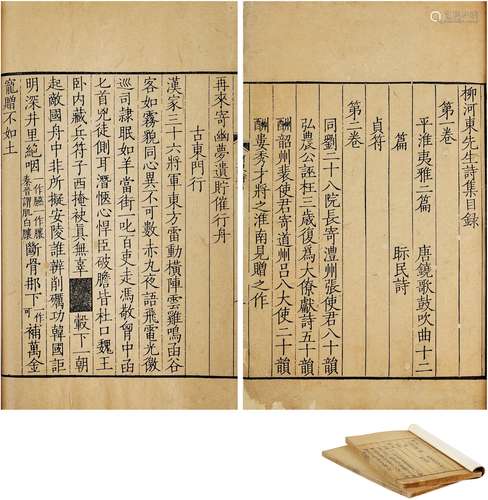 柳河東先生詩集目録
第一卷
平淮夷雅二篇 唐鐃歌鼓吹曲十二
篇 眎民詩
貞符
第二卷
同劉二十八院長寄澧州張使君八十韻
弘農公詿枉三歲復為大僚獻詩五十韻
酬韶州裴使君寄道州呂八大使二十韻
酬婁秀才將之淮南見贈之作
再來寄幽夢遺貯催行舟
古東門行
漢家三十六將軍東方雷動橫陣雲雞鳴函谷
客如霧貌同心異不可數赤丸夜語飛電光徼
巡司隸眠如羊當街一叱百吏走馮敬胷中函
匕首兇徒側耳潛愜心悍臣破膽皆杜口魏王
臥内藏兵符子西掩袂真無辜 轂下一朝
起敵國舟中非所擬安陵誰辨削礪功韓國詎
明深井里絶咽 一作 一作 秦晉謂肌曰 斷骨那下 一作可 補萬金
寵贈不如土